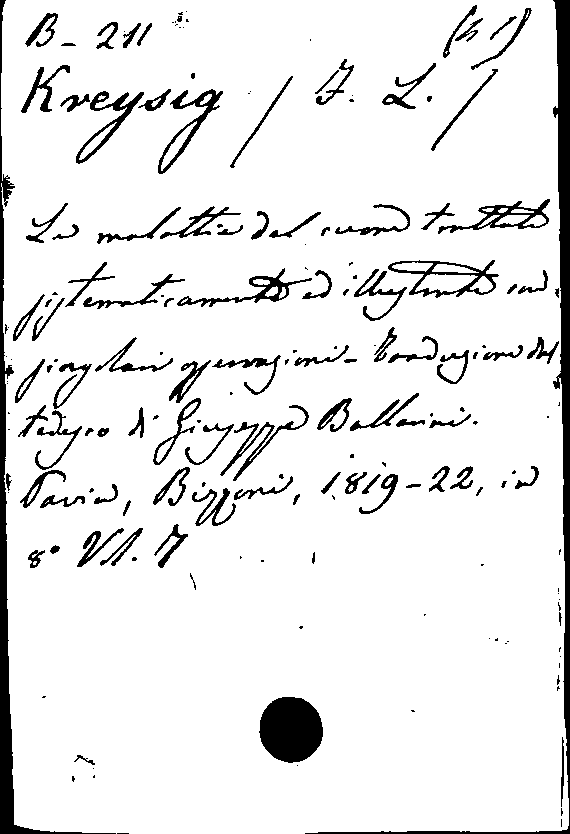 B - 211
Kreysig / F. L. /
Le malattie del cuore trattate
sistematicamente ed illustrate con
singolari osservazioni - Traduzione dal
tedesco di Giuseppe Ballarini.
Pavia, Bizzoni, 1819-22, in
8° Vol. 7